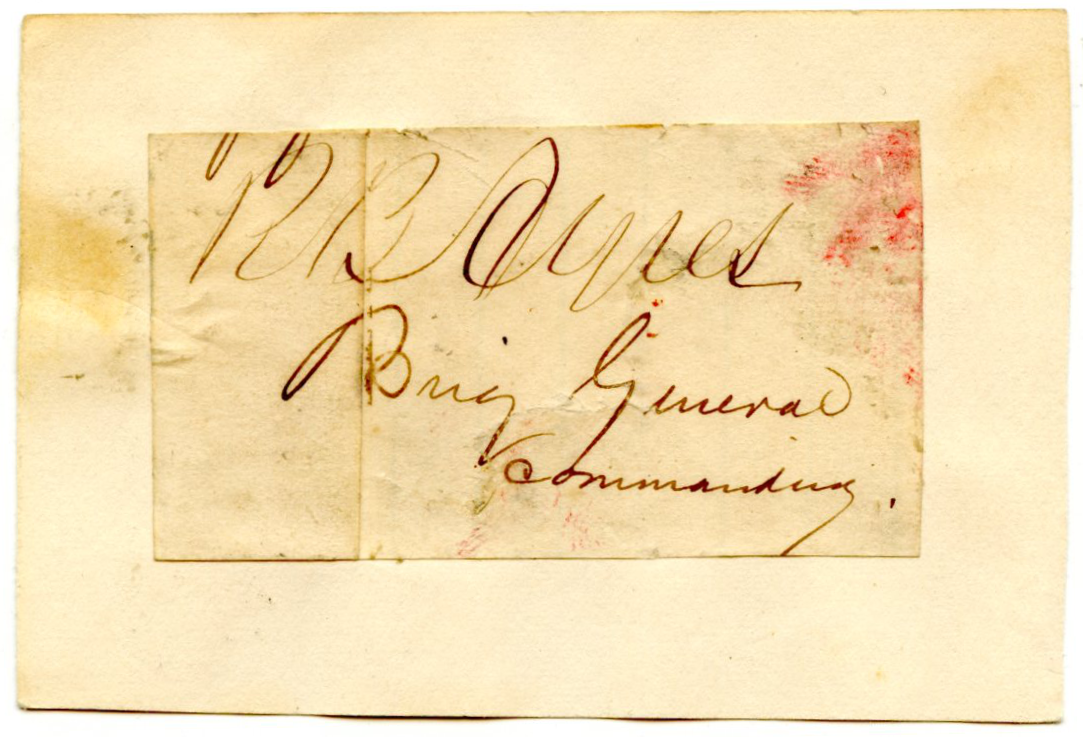 R B Ayres
Brig General
Commanding.